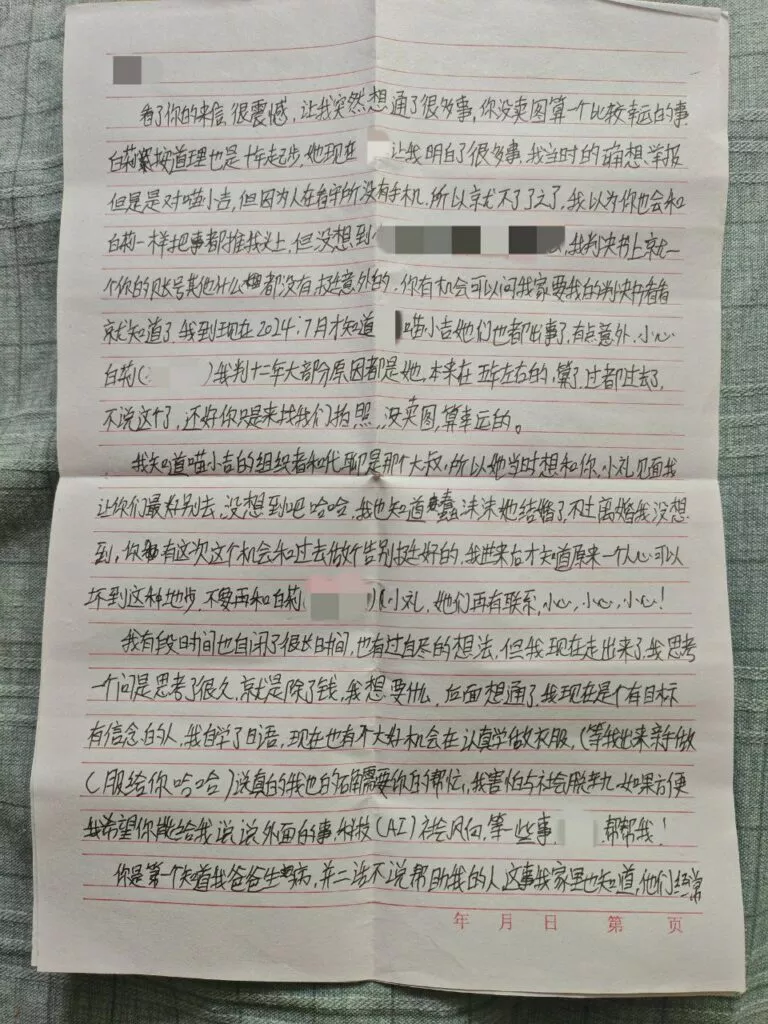 看了你的来信很震憾，让我突然想通了很多事，你没卖图算一个比较幸运的事
白莉按道理也是十年起步，她现在 让我明白了很多事，我当时的确想举报
但是是对喵小吉，但因为人在看守所没有手机，所以就不了了之了，我以为你也会和
白莉一样把事都推我头上，但没想到 ，我判决书上就一
个你的账号其他什么都没有，挺意外的，你有机会可以问我家要我的判决书看看
就知道了，我到现在2024.7月才知道 喵小吉她们也都出事了，有点意外，小心
白莉( )我判十二年大部分原因都是她，本来在五年左右的，算了，过都过去了，
不说这个了，还好你只是来找我们拍照，没卖图，算幸运的。
我知道喵小吉的组织者和代聊是那个大叔，所以她当时想和你，小礼见面我
让你们最好别去，没想到吧哈哈，我也知道蠢沫沫她结婚了，不过离婚我没想
到，你有这次这个机会和过去做个告别挺好的，我进来后才知道原来一个人心可以
坏到这种地步，不要再和白莉( )(小礼，她们再有联系，小心，小心，小心！
我有段时间也自闭了很长时间，也有过自尽的想法，但我现在走出来了，我思考
一个问是思考了很久，就是除了钱，我想要什么，后面想通了，我现在是个有目标
有信念的人，我自学了日语，现在也有个大好机会在认真学做衣服，(等我出来亲手做
(服给你哈哈)说真的我也的确需要你的帮忙，我害怕与社会脱轨，如果方便
我希望你能给我说说外面的事，科技(AI)社会风向，等一些事 帮帮我！
你是第一个知道我爸爸生病，并二话不说帮助我的人，这事我家里也知道，他们经常
年 月 日 第 页